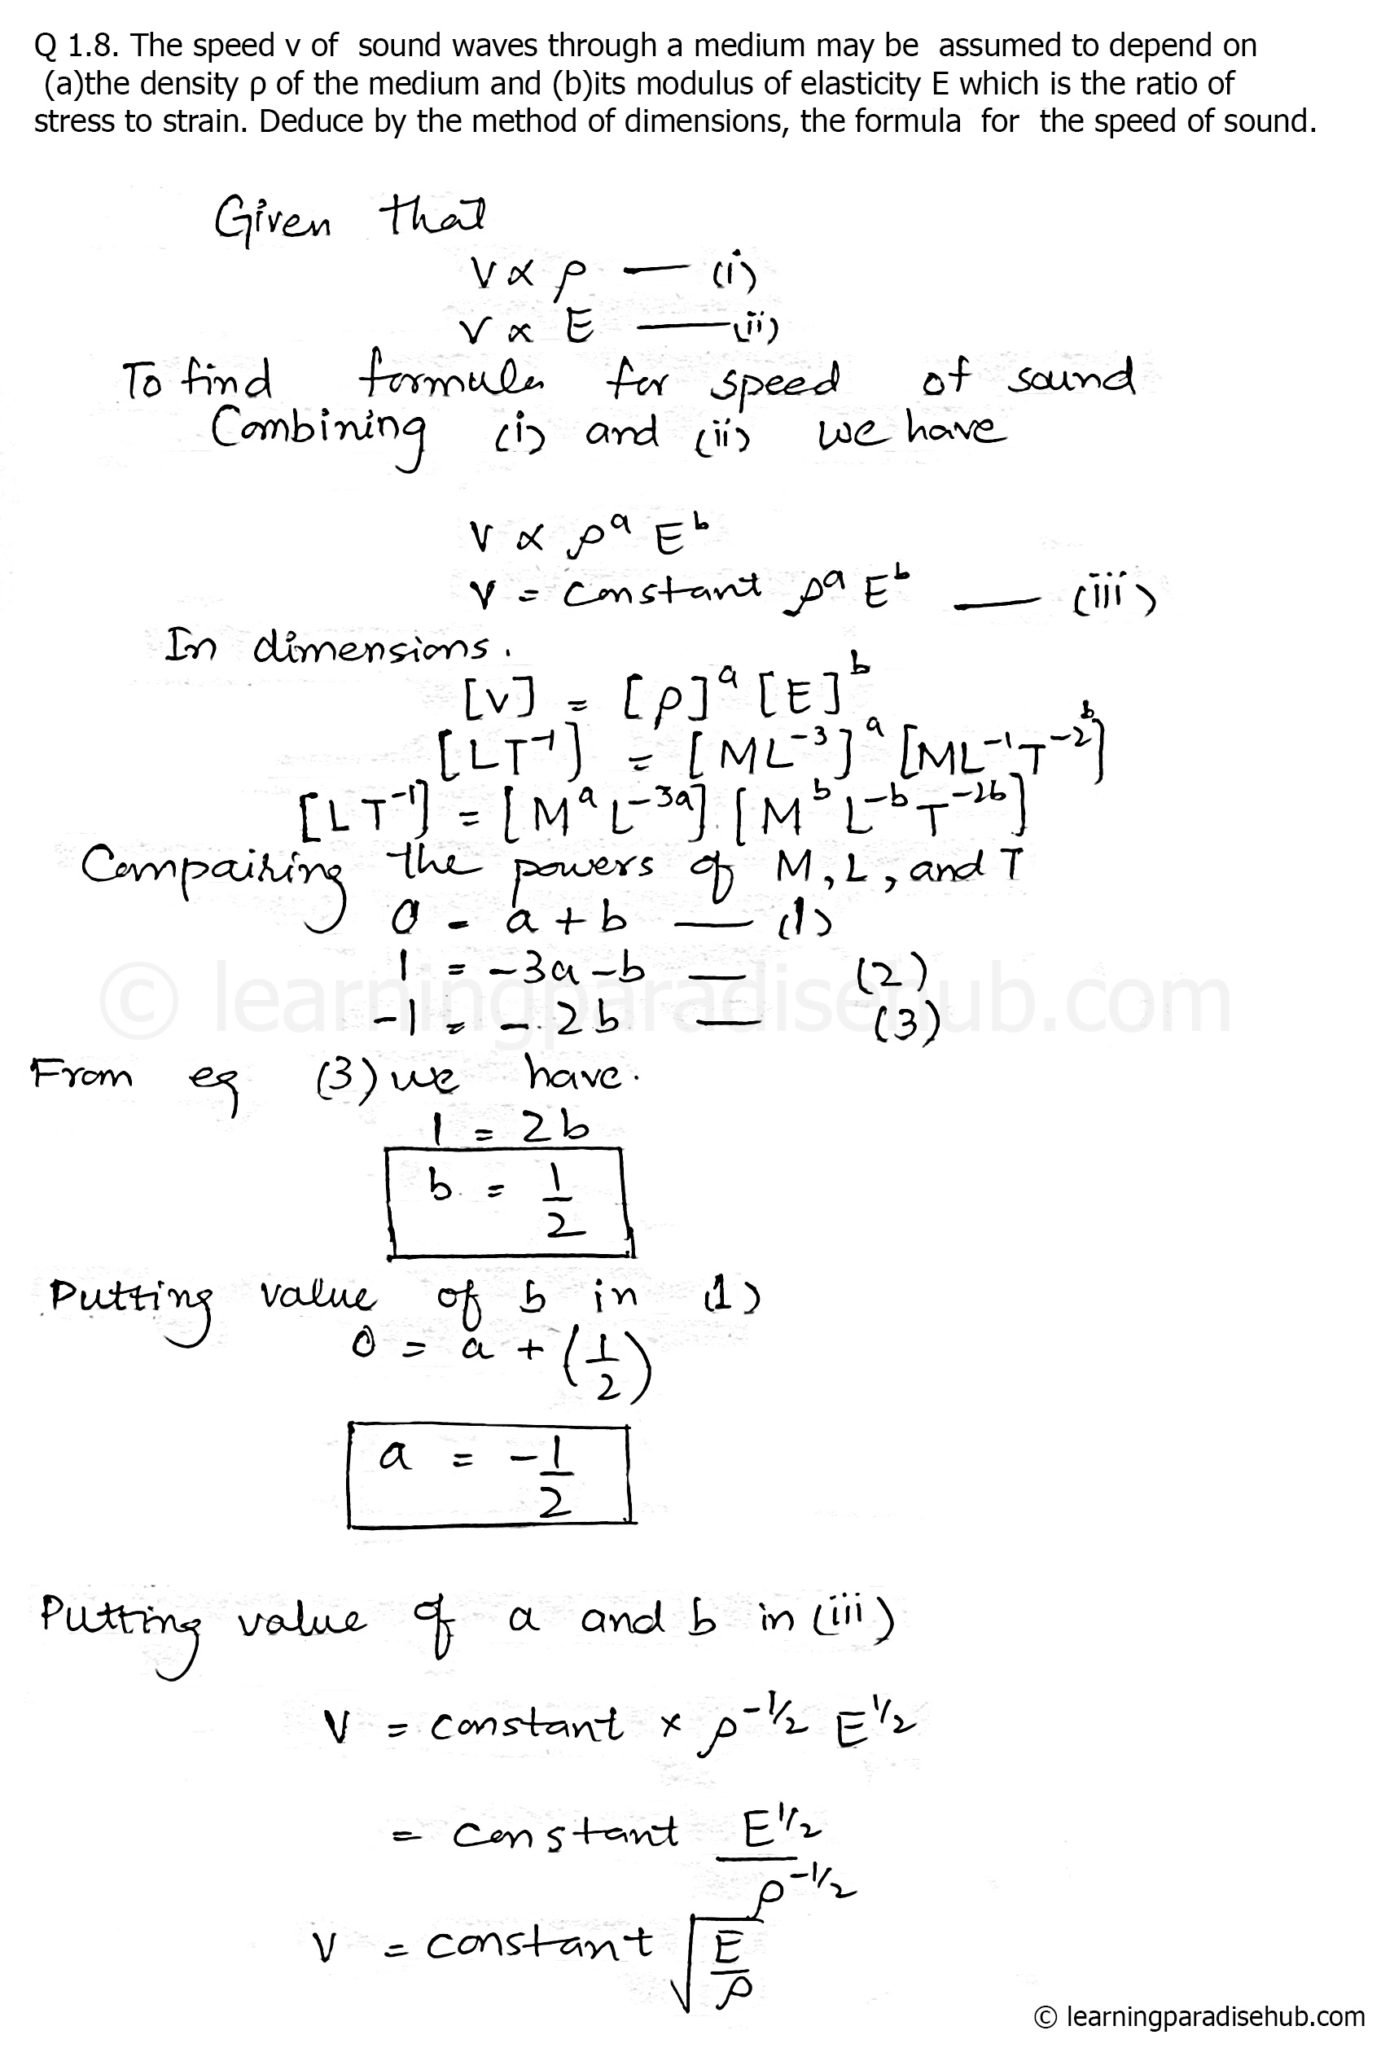 Q 1.8. The speed v of sound waves through a medium may be assumed to depend on
(a)the density ρ of the medium and (b)its modulus of elasticity E which is the ratio of
stress to strain. Deduce by the method of dimensions, the formula for the speed of sound.
Given that
V ∝ ρ — (i)
V ∝ E — (ii)
To find formula for speed of sound
Combining (i) and (ii) we have
V ∝ ρ^a E^b
V = constant ρ^a E^b — (iii)
In dimensions.
[V] = [ρ]^a [E]^b
[LT^-1] = [ML^-3]^a [ML^-1T^-2]^b
[LT^-1] = [M^a L^-3a] [M^b L^-b T^-2b]
Compairing the powers of M, L, and T
0 = a + b — (1)
1 = -3a - b — (2)
-1 = -2b — (3)
© learningparadisehub.com
From eq (3) we have.
1 = 2b
b = 1/2
Putting value of b in (1)
0 = a + (1/2)
a = -1/2
Putting value of a and b in (iii)
V = constant × ρ^-1/2 E^1/2
= constant E^1/2 / ρ^-1/2
V = constant √(E/ρ)
© learningparadisehub.com